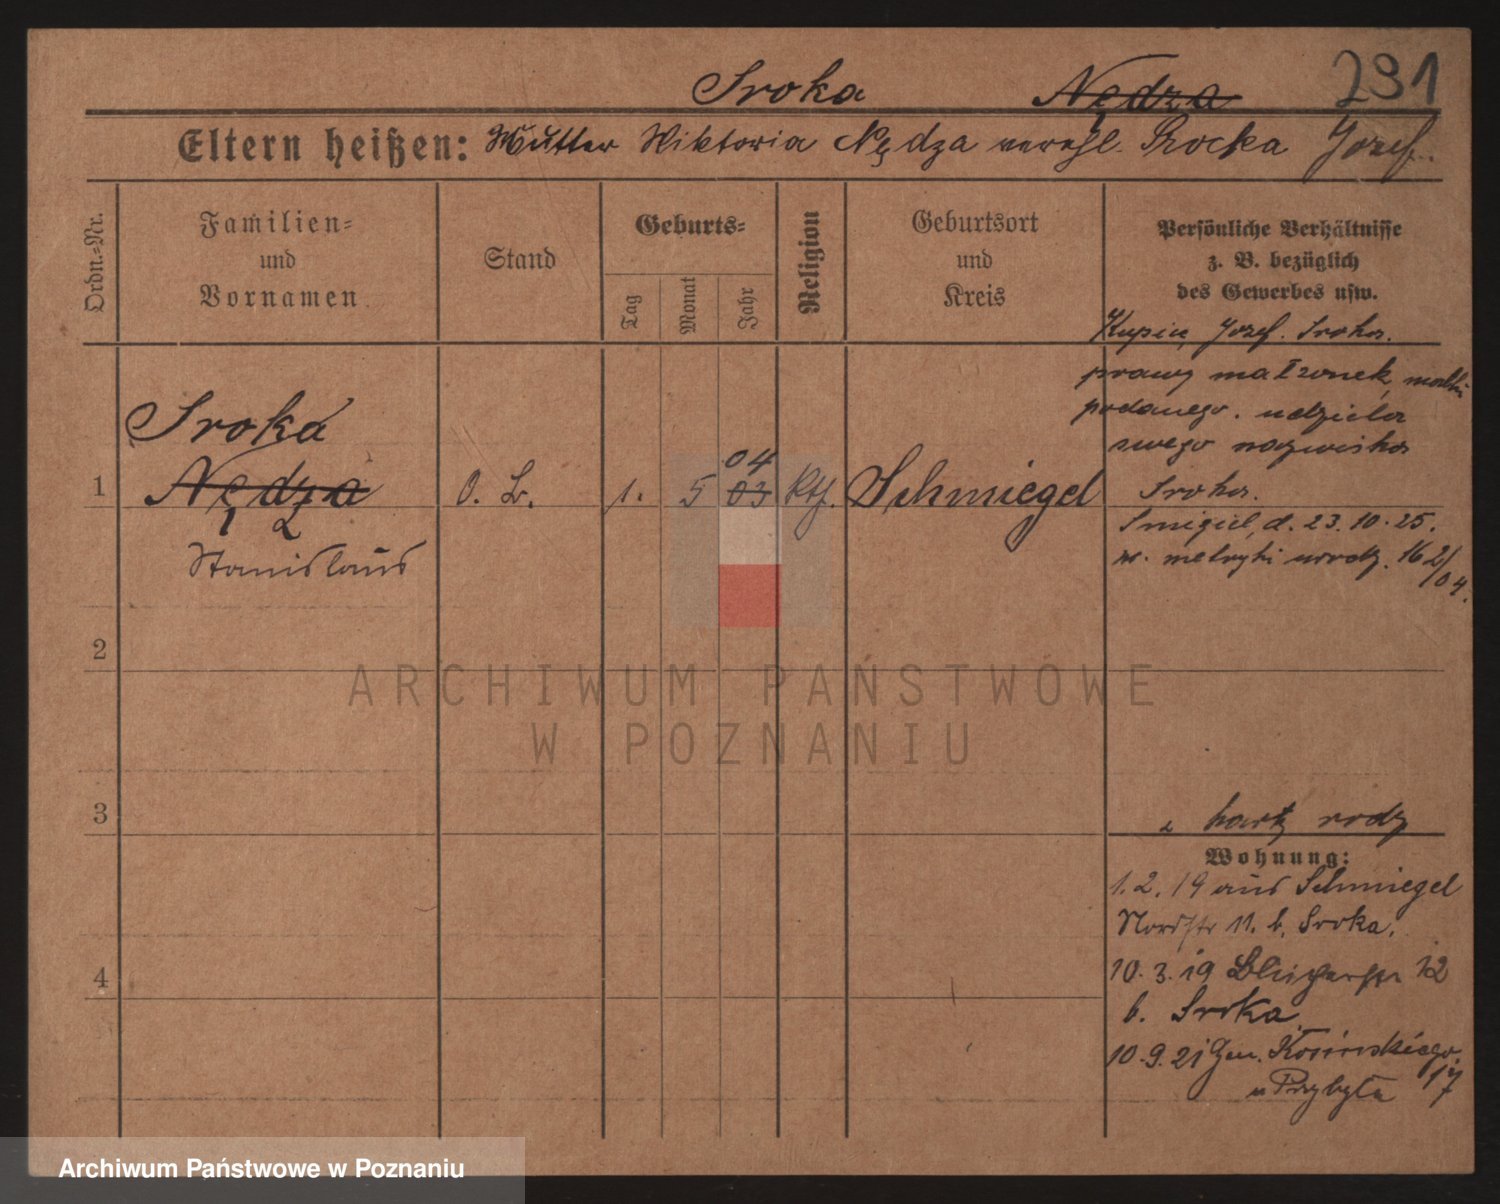 Sroka Nędza 291
Eltern heißen: Mutter Wiktoria Nędza verehl. Srocka Jozef.
Ordn.-Nr.
Familien-
und
Vornamen
Stand
Geburts-
Tag
Monat
Jahr
Religion
Geburtsort
und
Kreis
Persönliche Verhältnisse
z. B. bezüglich
des Gewerbes usw.
Jozef Sroka
prawy małżonek matki
podanego. udziela
swego nazwiska
Sroka.
Śmigiel, d. 23.10.25.
nr. metryki urodz. 162/04.
Sroka
1 Nędza
1 2
Stanislaus
1. 5 04
03
Kth.
Schmiegel
2
3
4
z karty rodz
Wohnung:
1.2.19 aus Schmiegel
Nordstr 11. b. Sroka.
10.3.19 12
b. Sroka
10.9.21 Gen. Kosinskiego 17
u Przybyła
ARCHIWUM PAŃSTWOWE
W POZNANIU
Archiwum Państwowe w Poznaniu